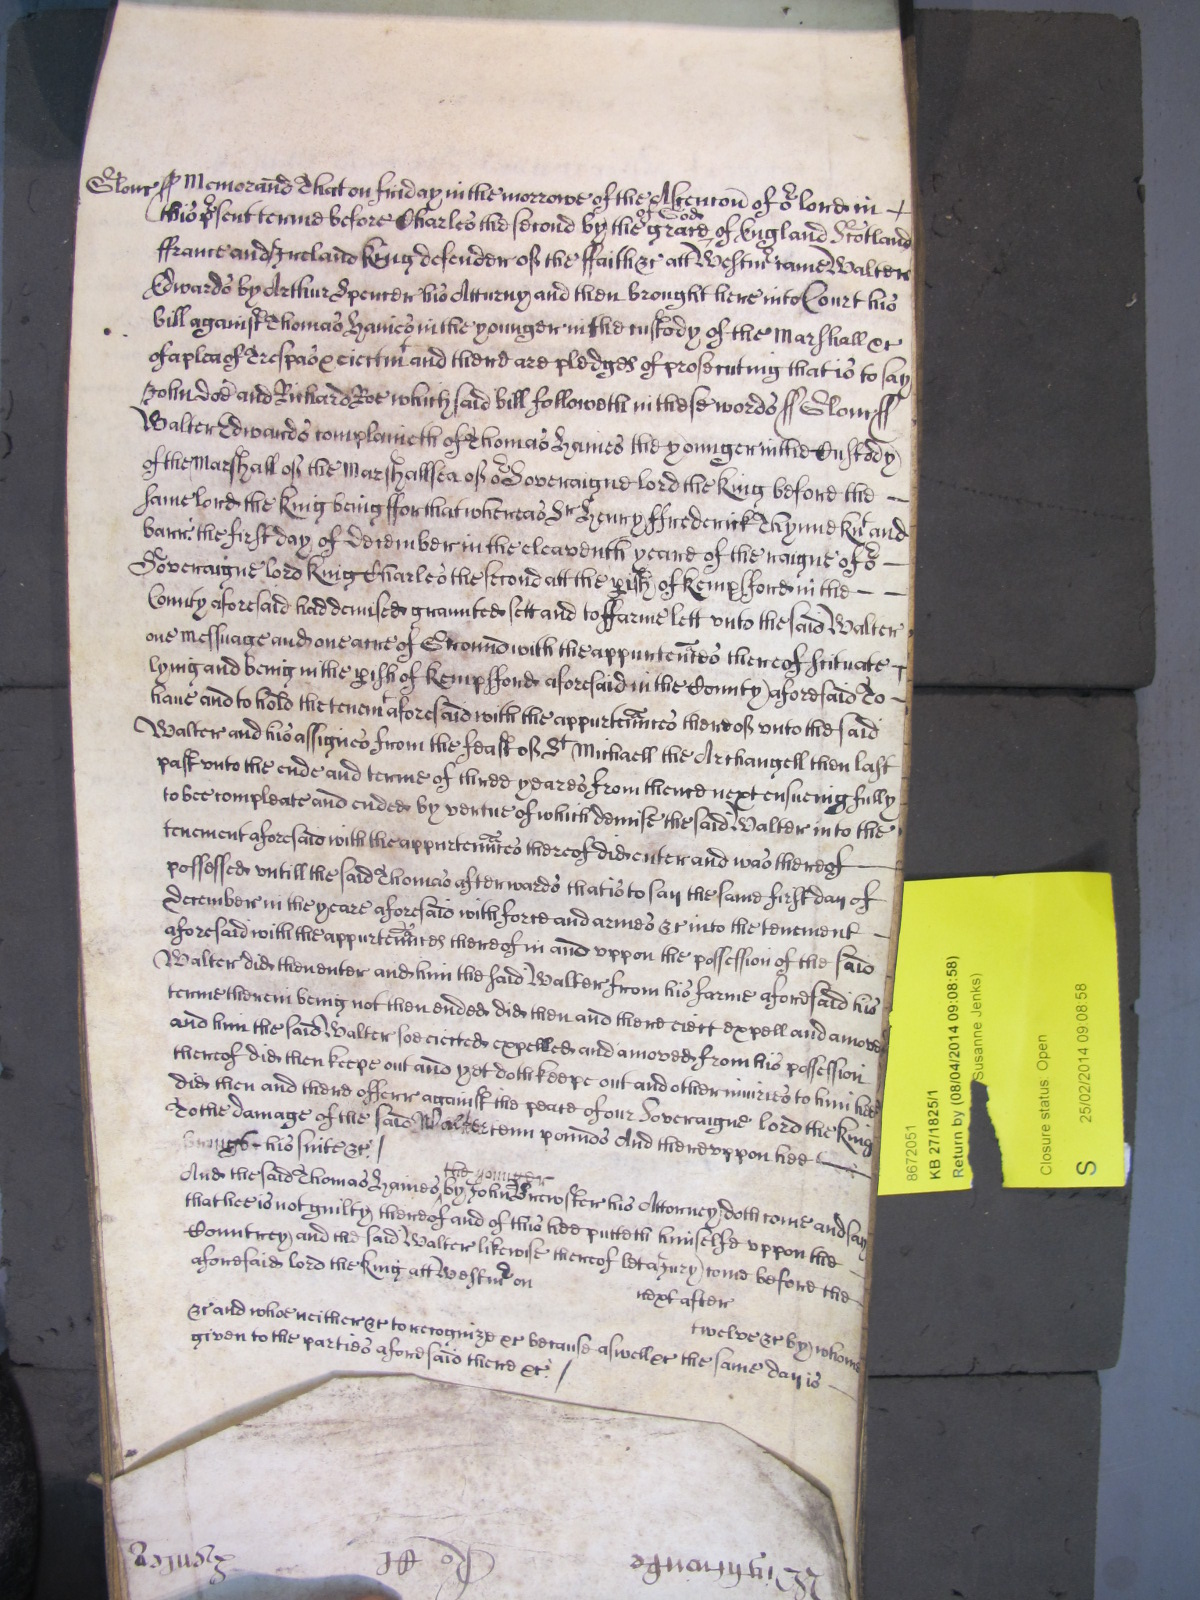 Glouc ss Memorand That on friday in the morrowe of the Ascencon of or lord in
this psent terme before Charles the second by the grace of God of England Scotland
ffrance and Ireland King defender of the ffaith &c att Westmr came Walter
Edwards by Arthur Spencer his Atturny and then brought here into Court his
bill against Thomas Haines the younger in the custody of the Marshall &c
of a plea of Trespas & eiectmt and there are pledges of prosecuting that is to say
John Doe and Richard Roe which said bill followeth in these words ss Glouc ss
Walter Edwards complaineth of Thomas Haines the younger in the Custody
of the Marshall of the Marshallsea of or Soveraigne lord the King before the
same lord the King being ffor that whereas Sr Henry ffrederick Thynne Knt and
barrt the first day of December in the eleaventh yeare of the raigne of or
Soveraigne lord King Charles the second att the pish of Kempsford in the
County aforesaid had demised graunted sett and to ffarme lett unto the said Walter
one messuage and one acre of Ground with the appurtennces thereof scituate
lying and being in the pish of Kempsford aforesaid in the County aforesaid To
have and to hold the tenemt aforesaid with the appurtennces thereof unto the said
Walter and his assignes from the feast of St Michaell the Archangell then last
past unto the ende and terme of three yeares from thence next ensueing fully
to bee compleate and ended by vertue of which demise the said Walter into the
tenement aforesaid with the appurtennces thereof did enter and was thereof
possessed untill the said Thomas afterwards that is to say the same first day of
December in the yeare aforesaid with force and armes &c into the tenement
aforesaid with the appurtennces thereof in and uppon the possession of the said
Walter did then enter and him the said Walter from his farme aforesaid his
terme therein being not then ended did then and there eiect expell and amove
and him the said Walter soe eiected expelled and amoved from his possession
thereof did then keepe out and yet doth keepe out and other iniuries to him hee
did then and there offerr against the peace of our Soveraigne lord the King
To the damage of the said Walter tenn pounds And thereuppon hee
brings his suite &c
And the said Thomas Haines the younger by John Brewster his Attorney doth come and say
that hee is not guilty thereof and of this hee putteth himselfe uppon the
Countrey and the said Walter likewise thereof let a Jury come before the
aforesaid lord the King att Westmr on
next after
twelve &c by whome
&c and whoe neither &c to recognize &c because aswell &c the same day is
given to the parties aforesaid there &c
8672051
KB 27/1825/1
Return by (08/04/2014 09:08:58)
Susanne Jenks)
Closure status: Open
S
25/02/2014 09:08:58